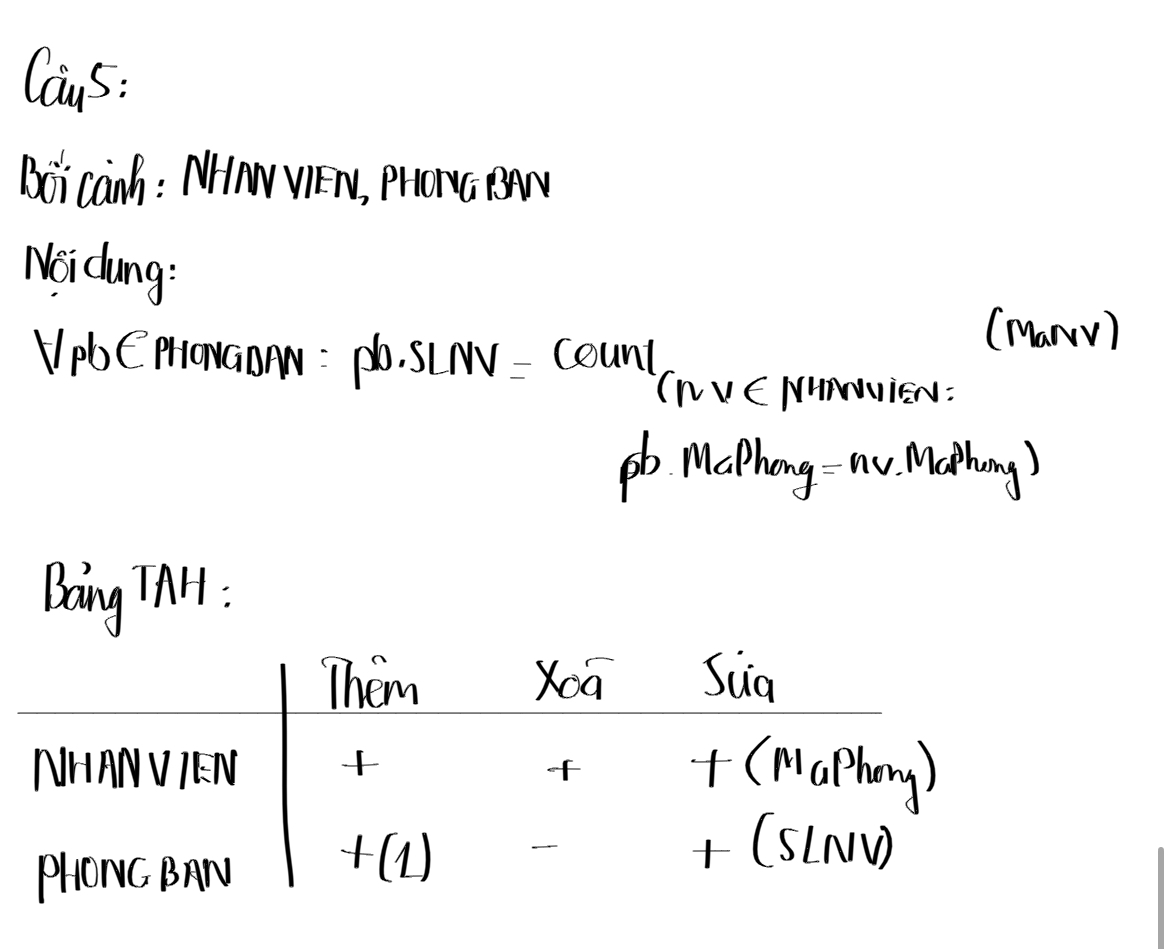 Câu 5:
Bối cảnh: NHANVIEN, PHONGBAN
Nội dung:
∀pb ∈ PHONGBAN: pb.SLNV = count(nv ∈ NHANVIEN: (MaNV)
pb.MaPhong = nv.MaPhong)
Bảng TAH:
Thêm Xoá Sửa
NHANVIEN + + + (MaPhong)
PHONGBAN +(1) - + (SLNV)